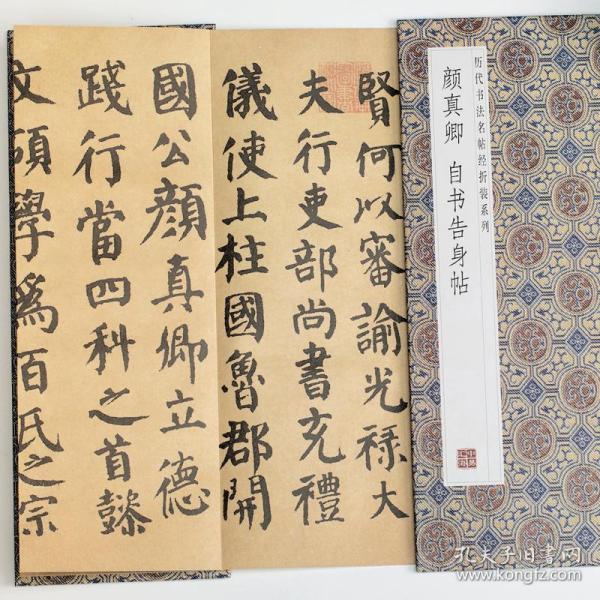 历代书法名帖经折装系列
颜真卿 自书告身帖
賢何以審諭光禄大
夫行吏部尚書充禮
儀使上柱國魯郡開
國公顔真卿立德
踐行當四科之首懿
文碩學爲百氏之宗
孔夫子旧书网
www.kongfz.com